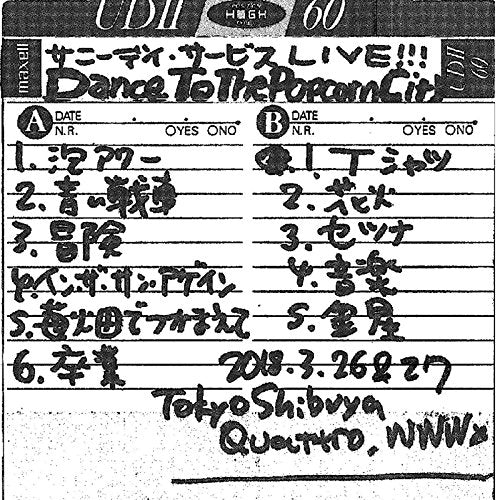 UDII HIGH 60
maxell
サニーデイ・サービス LIVE!!!
Dance To The Popcorn City
UDII 60
A DATE . .
N.R. OYES ONO
B DATE . .
N.R. OYES ONO
1. 泡アワー
2. 青い戦車
3. 冒険
4. イン・ザ・サン・アゲイン
5. 苺畑でつかまえて
6. 卒業
1. Tシャツ
2. 花火
3. セツナ
4. 音楽
5. 金星
2018.3.26&27
Tokyo Shibuya
Quattro, WWWX